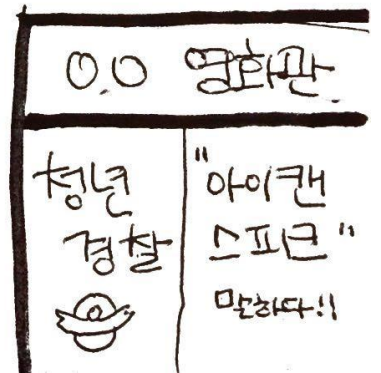 O.O 영화관
청년
경찰
"아이캔
스피크"
말하다!!